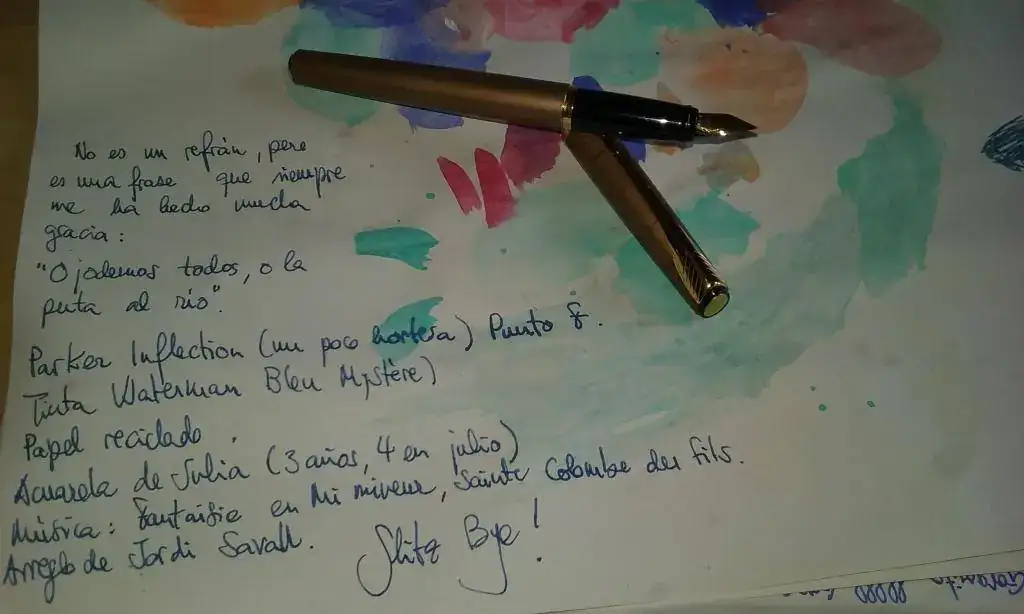 No es un refrán, pero
es una frase que siempre
me ha hecho mucha
gracia:
"O jodemos todos, o la
puta al río".
Parker Inflection (un poco hortera) Punto F.
Tinta Waterman Bleu Mystère)
Papel reciclado.
Acuarela de Julia (3 años, 4 en julio)
Música: Fantaisie en Mi mineur, Sainte Colombe des fils.
Arreglo de Jordi Savall.
Bye!